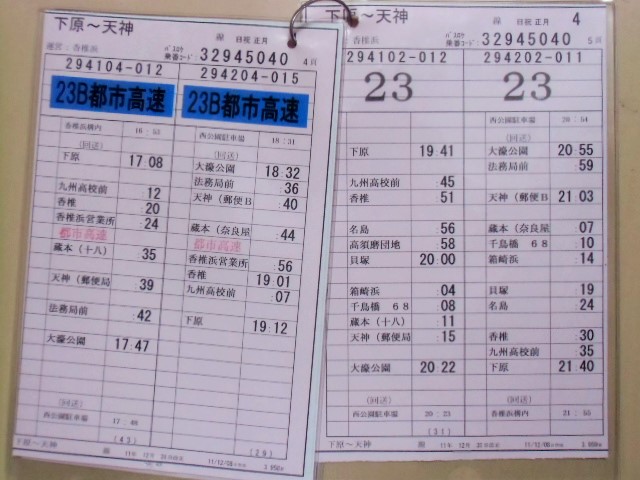 下原～天神
線 日祝 正月
運営：香椎浜
ﾊﾞｽﾛｹ
乗番ｺｰﾄﾞ: 32945040 4頁
294104-012 294204-015
23B都市高速 23B都市高速
香椎浜構内 16:53 西公園駐車場 18:31
(回送) (回送)
下原 17 08
大濠公園 18:32
法務局前 :36
九州高校前 :12
天神(郵便B :40
香椎 :20
香椎浜営業所 :24
蔵本(奈良屋 :44
都市高速 都市高速
蔵本(十八) :35
香椎浜営業所 :56
香椎 19 01
天神(郵便局 :39
九州高校前 :07
法務局前 :42
下原 19 12
大濠公園 17:47
(回送)
西公園駐車場
(43) (29)
下原～天神 線
下原～天神 線 日祝 正月 4
香椎浜
ﾊﾞｽﾛｹ
乗番ｺｰﾄﾞ: 32945040 5頁
294102-012 294202-011
23 23
西公園駐車場 20:54
(回送)
下原 19 41 大濠公園 20 55
法務局前 :59
九州高校前 :45
香椎 :51 天神(郵便B 21 03
名島 :56 蔵本(奈良屋 :07
高須磨団地 :58 千鳥橋 68 :10
貝塚 20:00 箱崎浜 :14
箱崎浜 :04 貝塚 :19
千鳥橋 68 :08 名島 :24
蔵本(十八) :11
天神(郵便局 :15 香椎 :30
九州高校前 :35
大濠公園 20 22 下原 21:40
(回送) (回送)
西公園駐車場 20:23 香椎浜構内 21:55
(31)
下原～天神 線